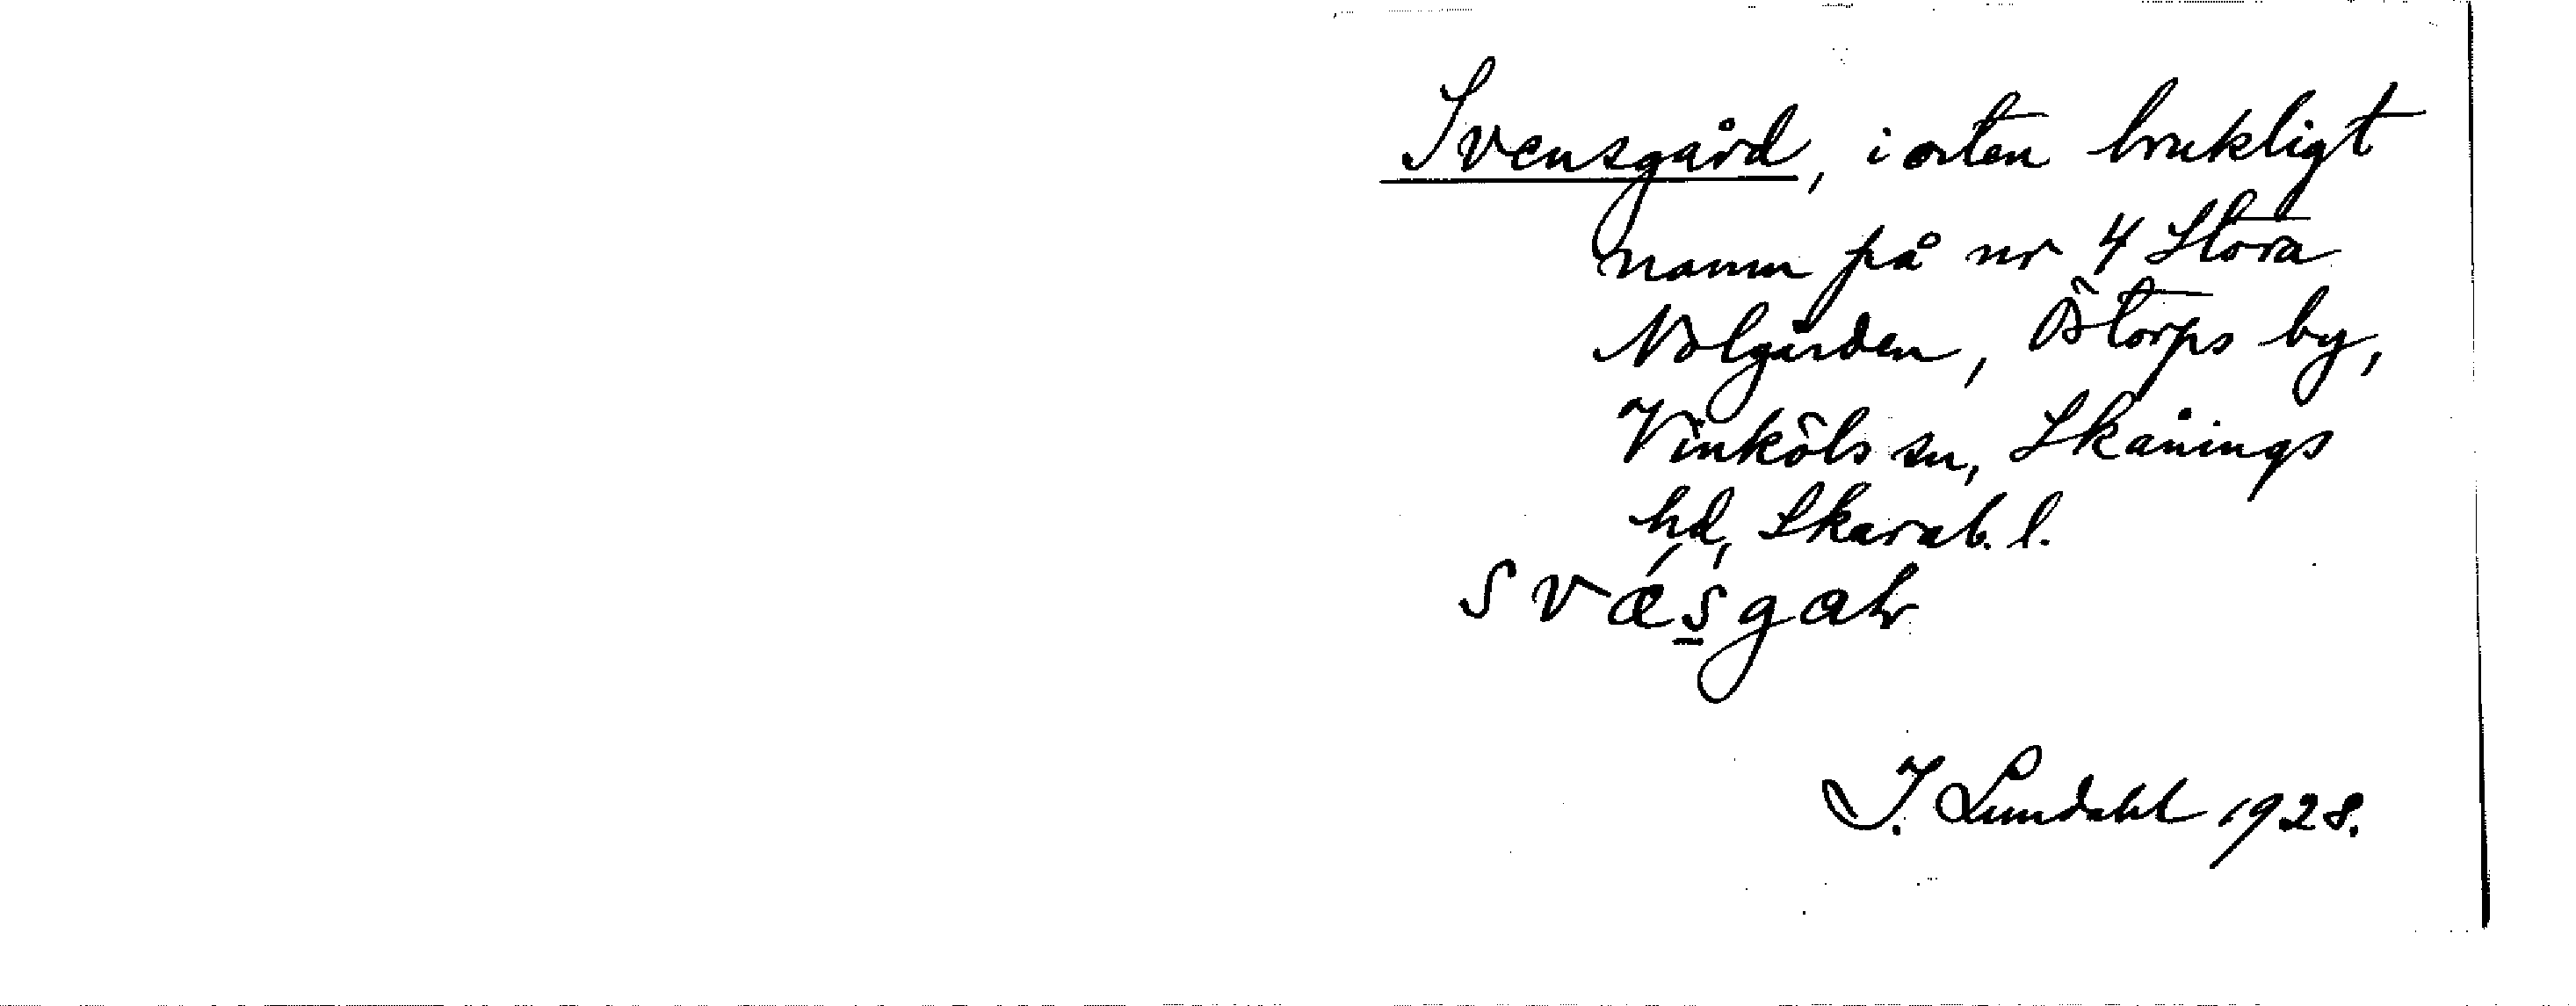 Svensgård, i orten brukligt
namn på nr 4 Stora
Nolgården, Östorps by,
Vinköls sn, Skånings
hd, Skarab. l.
svæ̂́s̠gaƚr
I. Lundahl 1928.